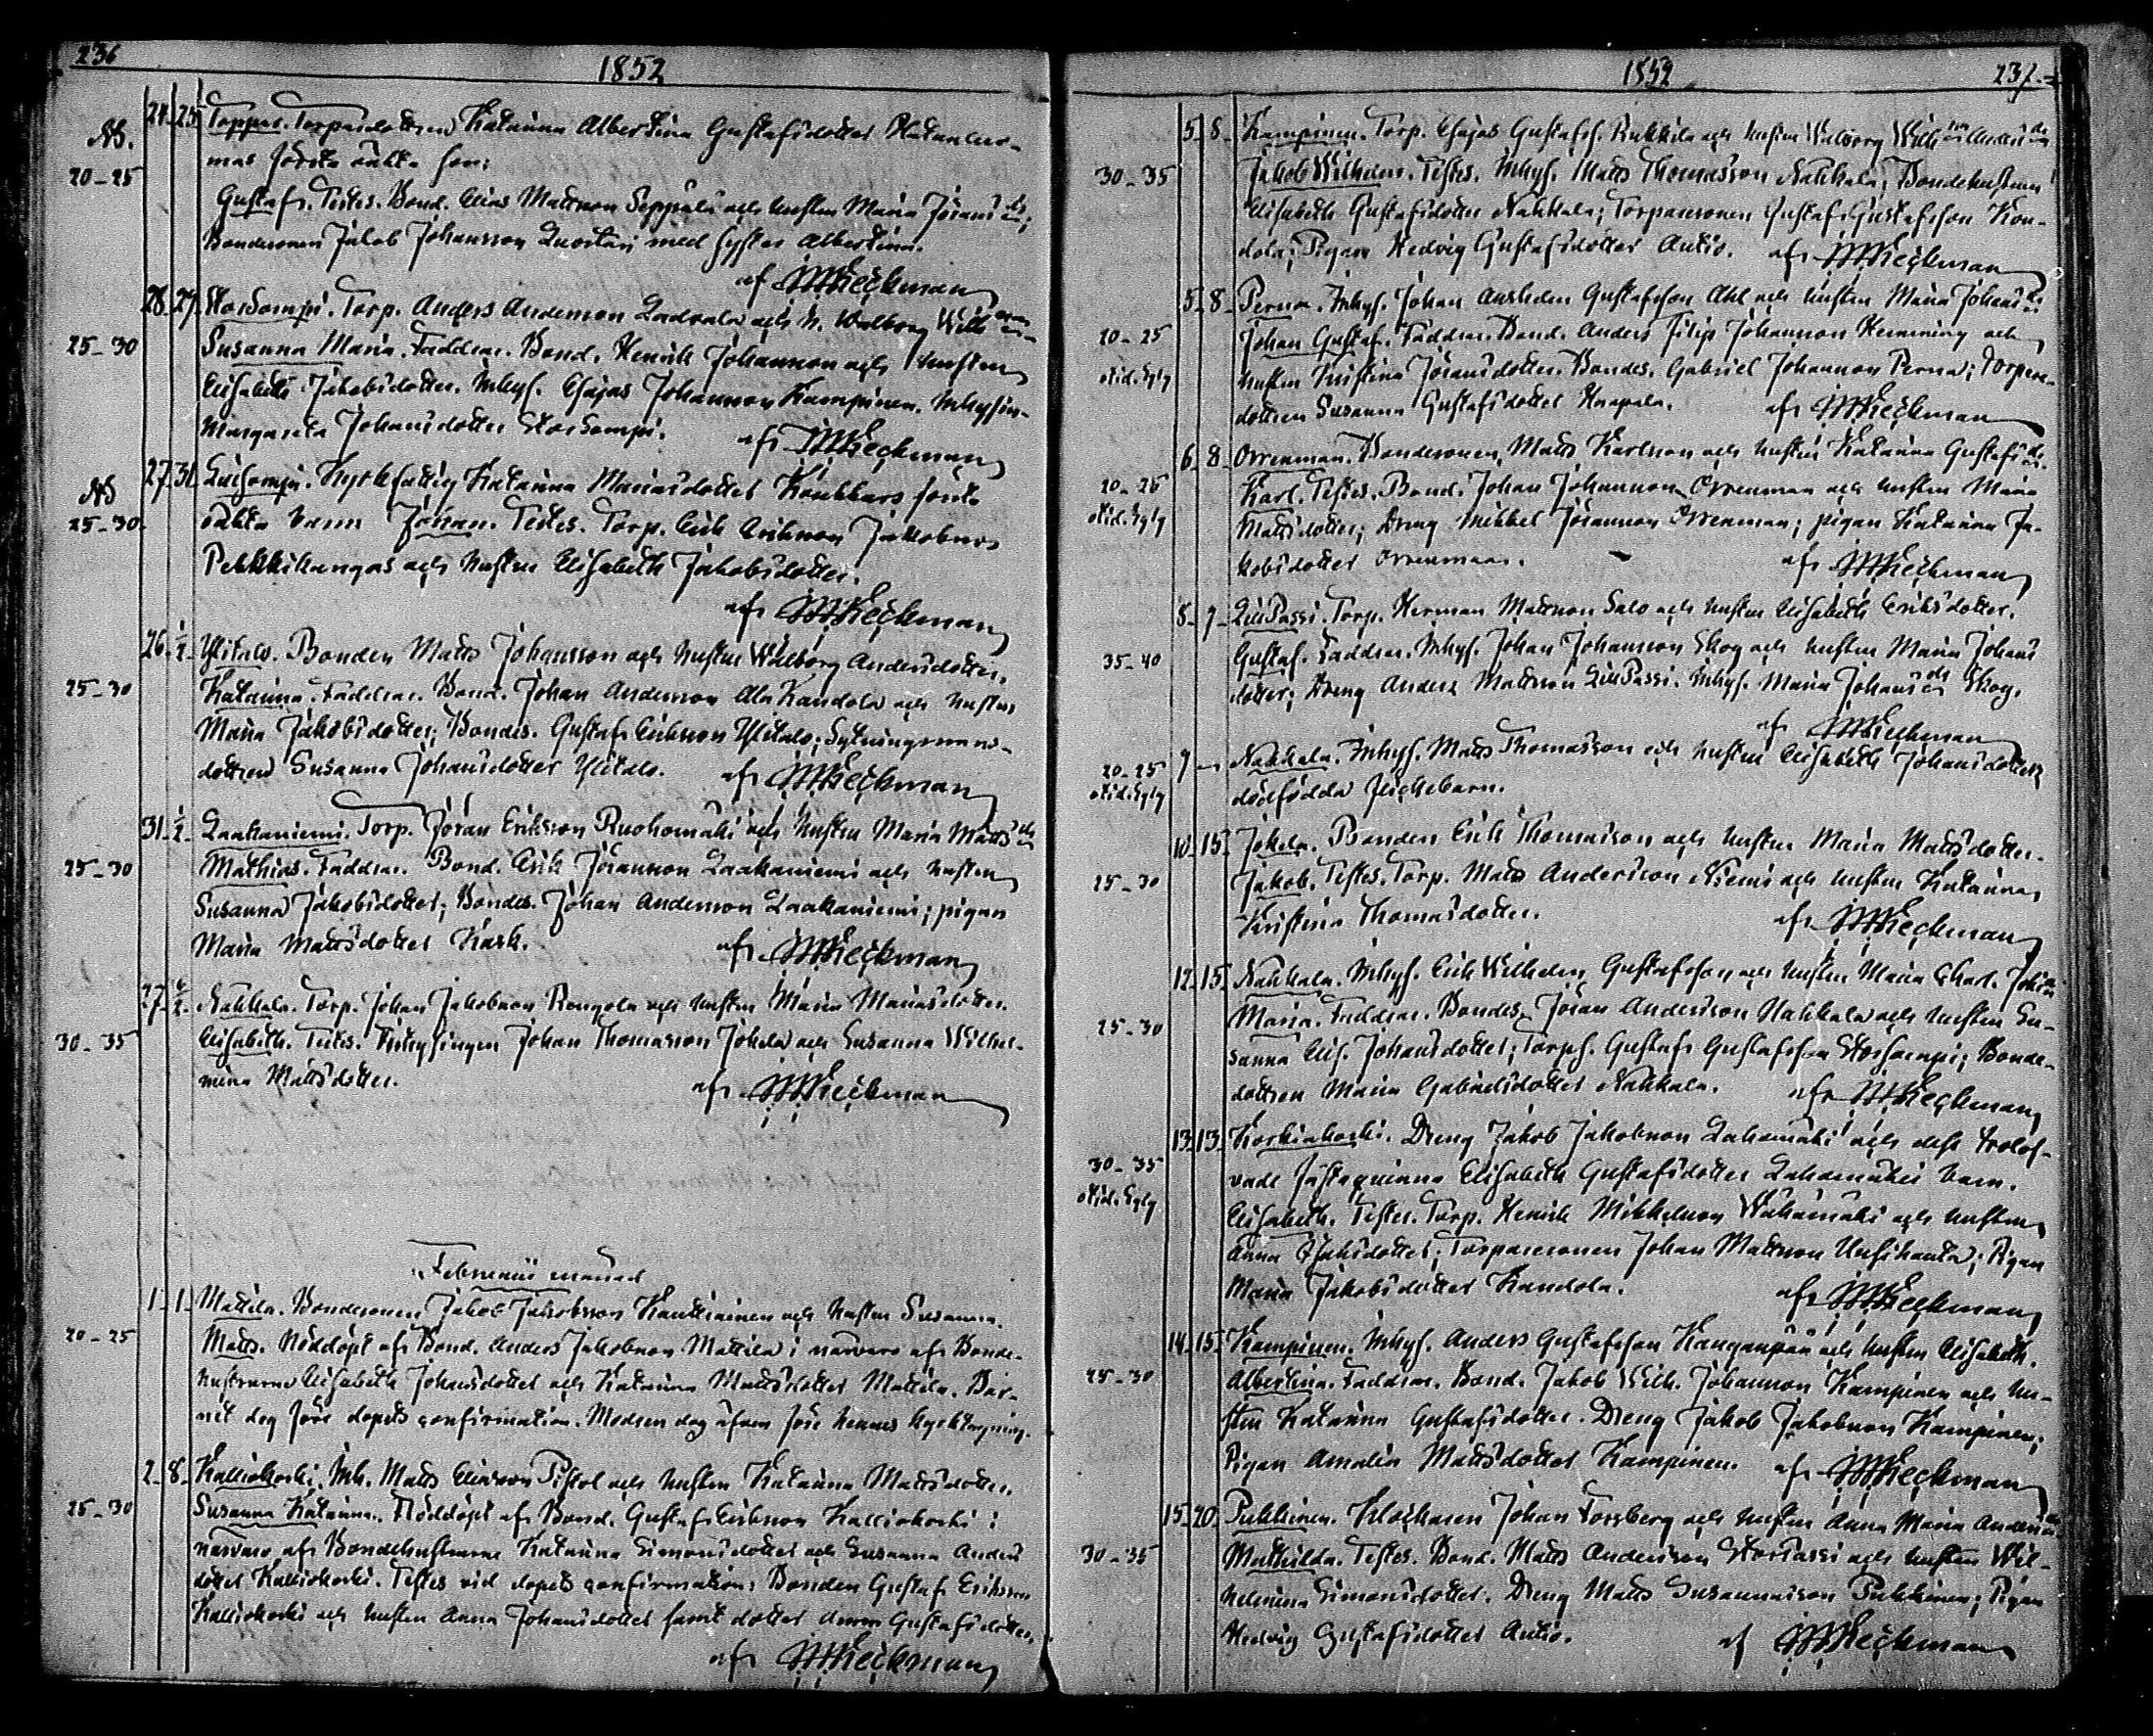 236
1852
NB.
24. 25. Toppar. Torparedottren Katarina Albertina Gustafsdotter
20-25
första oäkta son:
Gustaf. Testes. Bond. Elias Mattsson Seppälä och hustru Maria Jörans dr;
Bondesonen Jakob Johansson Luostari med syster Albertina.
af MHeckman
28. 29. StorSompi. Torp. Anders Andersson och h. Walborg Wilh
25-30
Susanna Maria. Faddrar. Bond. Henrik Johansson och hustru
Elisabeth Jakobsdotter. Inhys. Esajas Johansson Kampinen. Inhysin-
Margareta Johansdotter StorSompi. af MHeckman
NB
27. 31. LillSompi. Kyrkfattig Katarina Mariasdotter första
25-30
oäkta barn Johan. Testes. Torp. Erik Eriksson Jakobsson
Pekkikangas och hustru Elisabeth Jakobsdotter.
af MHeckman
26. 1/2 Ylitalo. Bonden Matts Johansson och hustru Walborg Andersdotter.
25-30
Katarina. Faddrar. Bond. Johan Andersson AlaKandola och hustru
Maria Jakobsdotter; Bondes. Gustaf Eriksson Ylitalo; Sytningsmans-
dottren Susanna Johansdotter Ylitalo. af MHeckman
31. 1/2 Laakaniemi. Torp. Jöran Eriksson Ruohomäki och hustru Maria Matts dr
25-30
Mathias. Faddrar. Bond. Erik Jöransson Laakaniemi och hustru
Susanna Jakobsdotter; Bondes. Johan Andersson Laakaniemi; pigan
Maria Mattsdotter Kark. af MHeckman
27. Nakkala. Torp. Johan Jakobsson Rengola och hustru Maria Mariasdotter.
30-35
Elisabeth. Testes. Inhysingen Johan Thomasson Jokela och Susanna Wilhel-
mina Mattsdotter. af MHeckman
Februarii månad
1. 1. Mattila. Bondesonen Jakob Jakobsson Kautiainen och hustru Susanna.
20-25
Matts. Nöddöpt af Bond. Anders Jakobsson Mattila i närvaro af Bonde-
hustrurne Elisabeth Johansdotter och Katarina Mattsdotter Mattila. Bar-
net dog före dopets confirmation. Modren dog äfven före hennes kyrktagning.
2. 8. Kalliokoski. Inh. Matts Eliasson Pistol och hustru Katarina Mattsdotter.
25-30
Susanna Katarina. Nöddöpt af Bond. Gustaf Eriksson Kalliokoski i
närvaro af Bondehustrurne Katarina Simonsdotter och Susanna Anders
dotter Kalliokoski. Testes vid dopets confirmation: Bonden Gustaf Eriksson
Kalliokoski och hustru Anna Johansdotter samt dotter Anna Gustafsdotter.
af MHeckman
1852
237.
5. 8. Kampinen. Torp. Esajas Gustafss. Rukkila och hustru Walborg Wilh
30-35
Jakob Wilhelm. Testes. Inhys. Matts Thomasson Nakkala; Bondehustrun
Elisabeth Gustafsdotter Nakkala; Torparesonen Gustaf Gustafsson Kan-
dola; Pigan Hedvig Gustafsdotter Autio. af MHeckman
5. 8. Perna. Inhys. Johan Anshelm Gustafsson Ahl och hustru Maria Johans dr
20-25
Johan Gustaf. Faddrar. Bond. Anders Filip Johansson Hemming och
hustru Kristina Jöransdotter. Bondes. Gabriel Johansson Perna; Torpare-
dottren Susanna Gustafsdotter Haapala. af MHeckman
6. 8. Orrenmaa. Bondesonen Matts Karlsson och hustru Katarina Gustafs dr.
20-25
Karl. Testes. Bond. Johan Johansson Orrenmaa och hustru Maria
Mattsdotter; Dreng Mikkel Jöransson Orrenmaa; pigan Katarina Ja-
kobsdotter Orrenmaa. af MHeckman
8. 9. LillPassi. Torp. Herman Mattsson Salo och hustru Elisabeth Eriksdotter.
35-40
Gustaf. Faddrar. Inhys. Johan Johansson Skog och hustru Maria Johans
dotter; Dreng Anders Mattsson LillPassi. Inhys. Maria Johans dr Skog.
af MHeckman
20-25
9 - Nakkala. Inhys. Matts Thomasson och hustru Elisabeth Johansdotters
dödfödda flickebarn.
10. 15. Jokela. Bonden Erik Thomasson och hustru Maria Mattsdotter.
25-30
Jakob. Testes. Torp. Matts Andersson Niemi och hustru Katarina
Kristina Thomasdotter. af MHeckman
12. 15. Nakkala. Inhys. Erik Wilhelm Gustafsson och hustru Maria
25-30
Maria. Faddrar. Bondes. Jöran Andersson Nakkala och hustru Su-
sanna Elis. Johansdotter; Torps. Gustaf Gustafsson StorSompi; Bonde-
dottren Maria Gabrielsdotter Nakkala. af MHeckman
13. 13. Koskinkoski. Dreng Jakob Jakobsson Lahomäki och dess trolof-
30-35
vade Fästeqvinna Elisabeth Gustafsdotter Lahomäkis barn.
Elisabeth. Testes. Torp. Henrik Mikkelsson Wähämäki och hustru
Anna Isaksdotter; Torparesonen Johan Mattsson Uusihauta; Pigan
Maria Jakobsdotter Kandola. af MHeckman
14. 15. Kampinen. Inhys. Anders Gustafsson Kanganpää och hustru Elisabeth.
25-30
Albertina. Faddrar. Bond. Jakob Wilh. Johansson Kampinen och hu-
stru Katarina Gustafsdotter. Dreng Jakob Jakobsson Kampinen;
Pigan Amalia Mattsdotter Kampinen. af MHeckman
15. 20. Pukkinen. Klockaren Johan Forsberg och hustru Anna Maria Anders dr
30-35
Mathilda. Testes. Bond. Matts Andersson StorPassi och hustru Wil-
helmina Simonsdotter. Dreng Matts Susannasson Pukkinen; Pigan
Hedvig Gustafsdotter Autio. af MHeckman